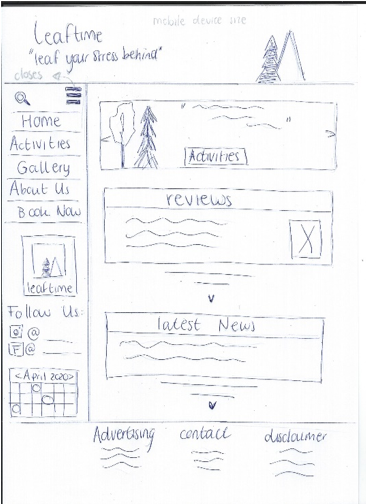 mobile device site
Leaftime
"leaf your stress behind"
closes
Home
Activities
Gallery
About Us
Book Now
leaftime
Follow Us:
@
F @
< April 2020 >
Activities
reviews
X
latest News
Advertising
contact
disclaimer